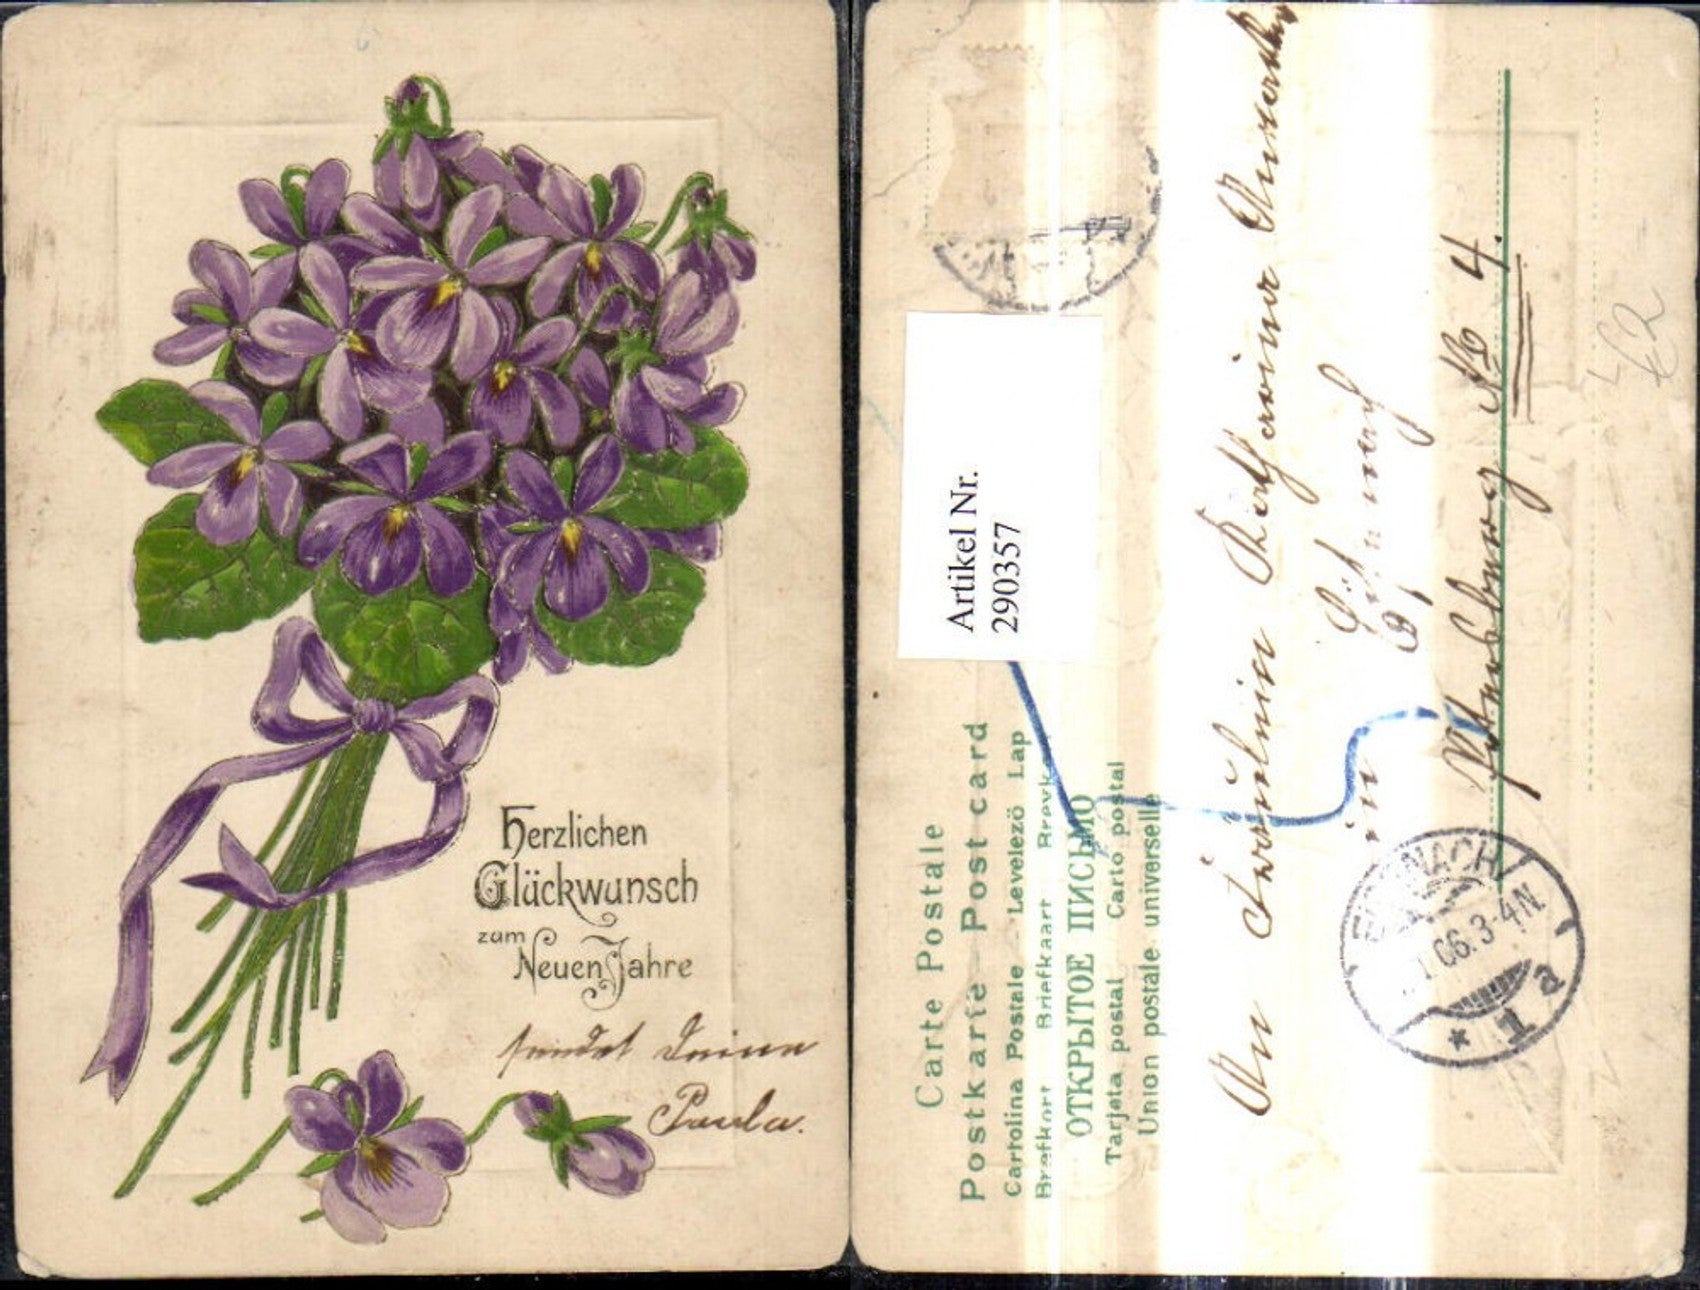 Herzlichen
Glückwunsch
zum
Neuen Jahre
sendet Deine
Paula.
Artikel Nr.
290357
Carte Postale
Postkarte - Post card
Cartolina Postale - Levelező Lap
Brefkort Briefkaart Brevkort
ОТКРЫТОЕ ПИСЬМО
Tarjeta postal Carto postal
Union postale universelle
An
Fräulein Katharine
in Eisenach
No 4.
EISENACH
06.3-4N.
* 1 a